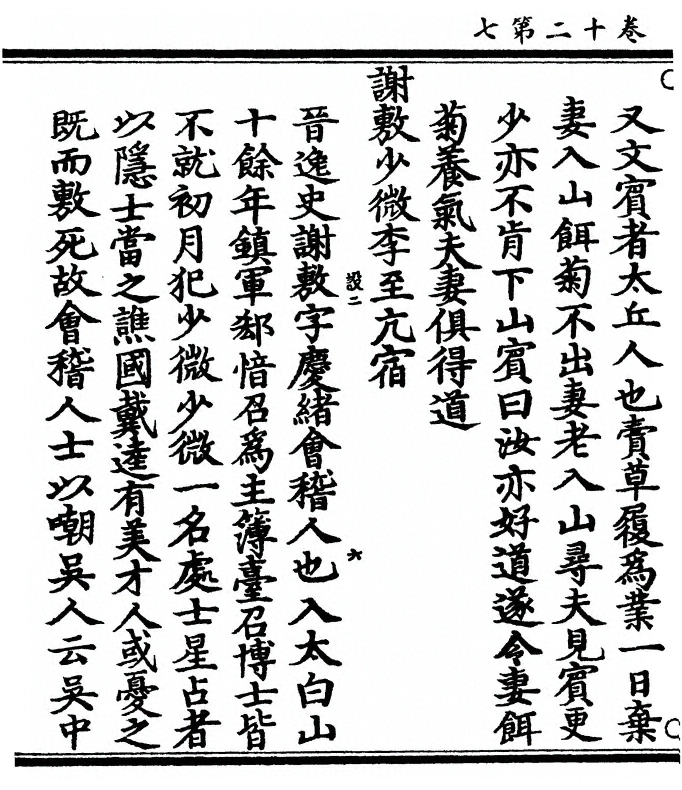 卷十二第七
又文賓者太丘人也賣草履爲業一日棄
妻入山餌菊不出妻老入山尋夫見賓更
少亦不肯下山賓曰汝亦好道遂令妻餌
菊養氣夫妻俱得道
謝敷少微李至亢宿
設二
六
晉逸史謝敷字慶緒會稽人也入太白山
十餘年鎮軍郄愔召爲主簿臺召博士皆
不就初月犯少微少微一名處士星占者
以隱士當之譙國戴逵有美才人或憂之
既而敷死故會稽人士以嘲吳人云吳中